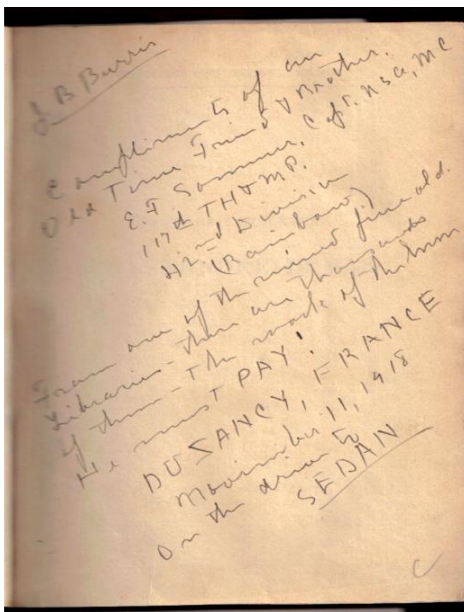 J B Burris
Compliments of an
Old Time Friend & Brother.
E. F. Capt. USA, MC
117th TH & MP.
42nd Division
(Rainbow)
From one of the ruined fine old
Libraries - there are thousands
of them - The work of the Hun
He must PAY!
BUZANCY, FRANCE
November 11, 1918
On the drive to
SEDAN